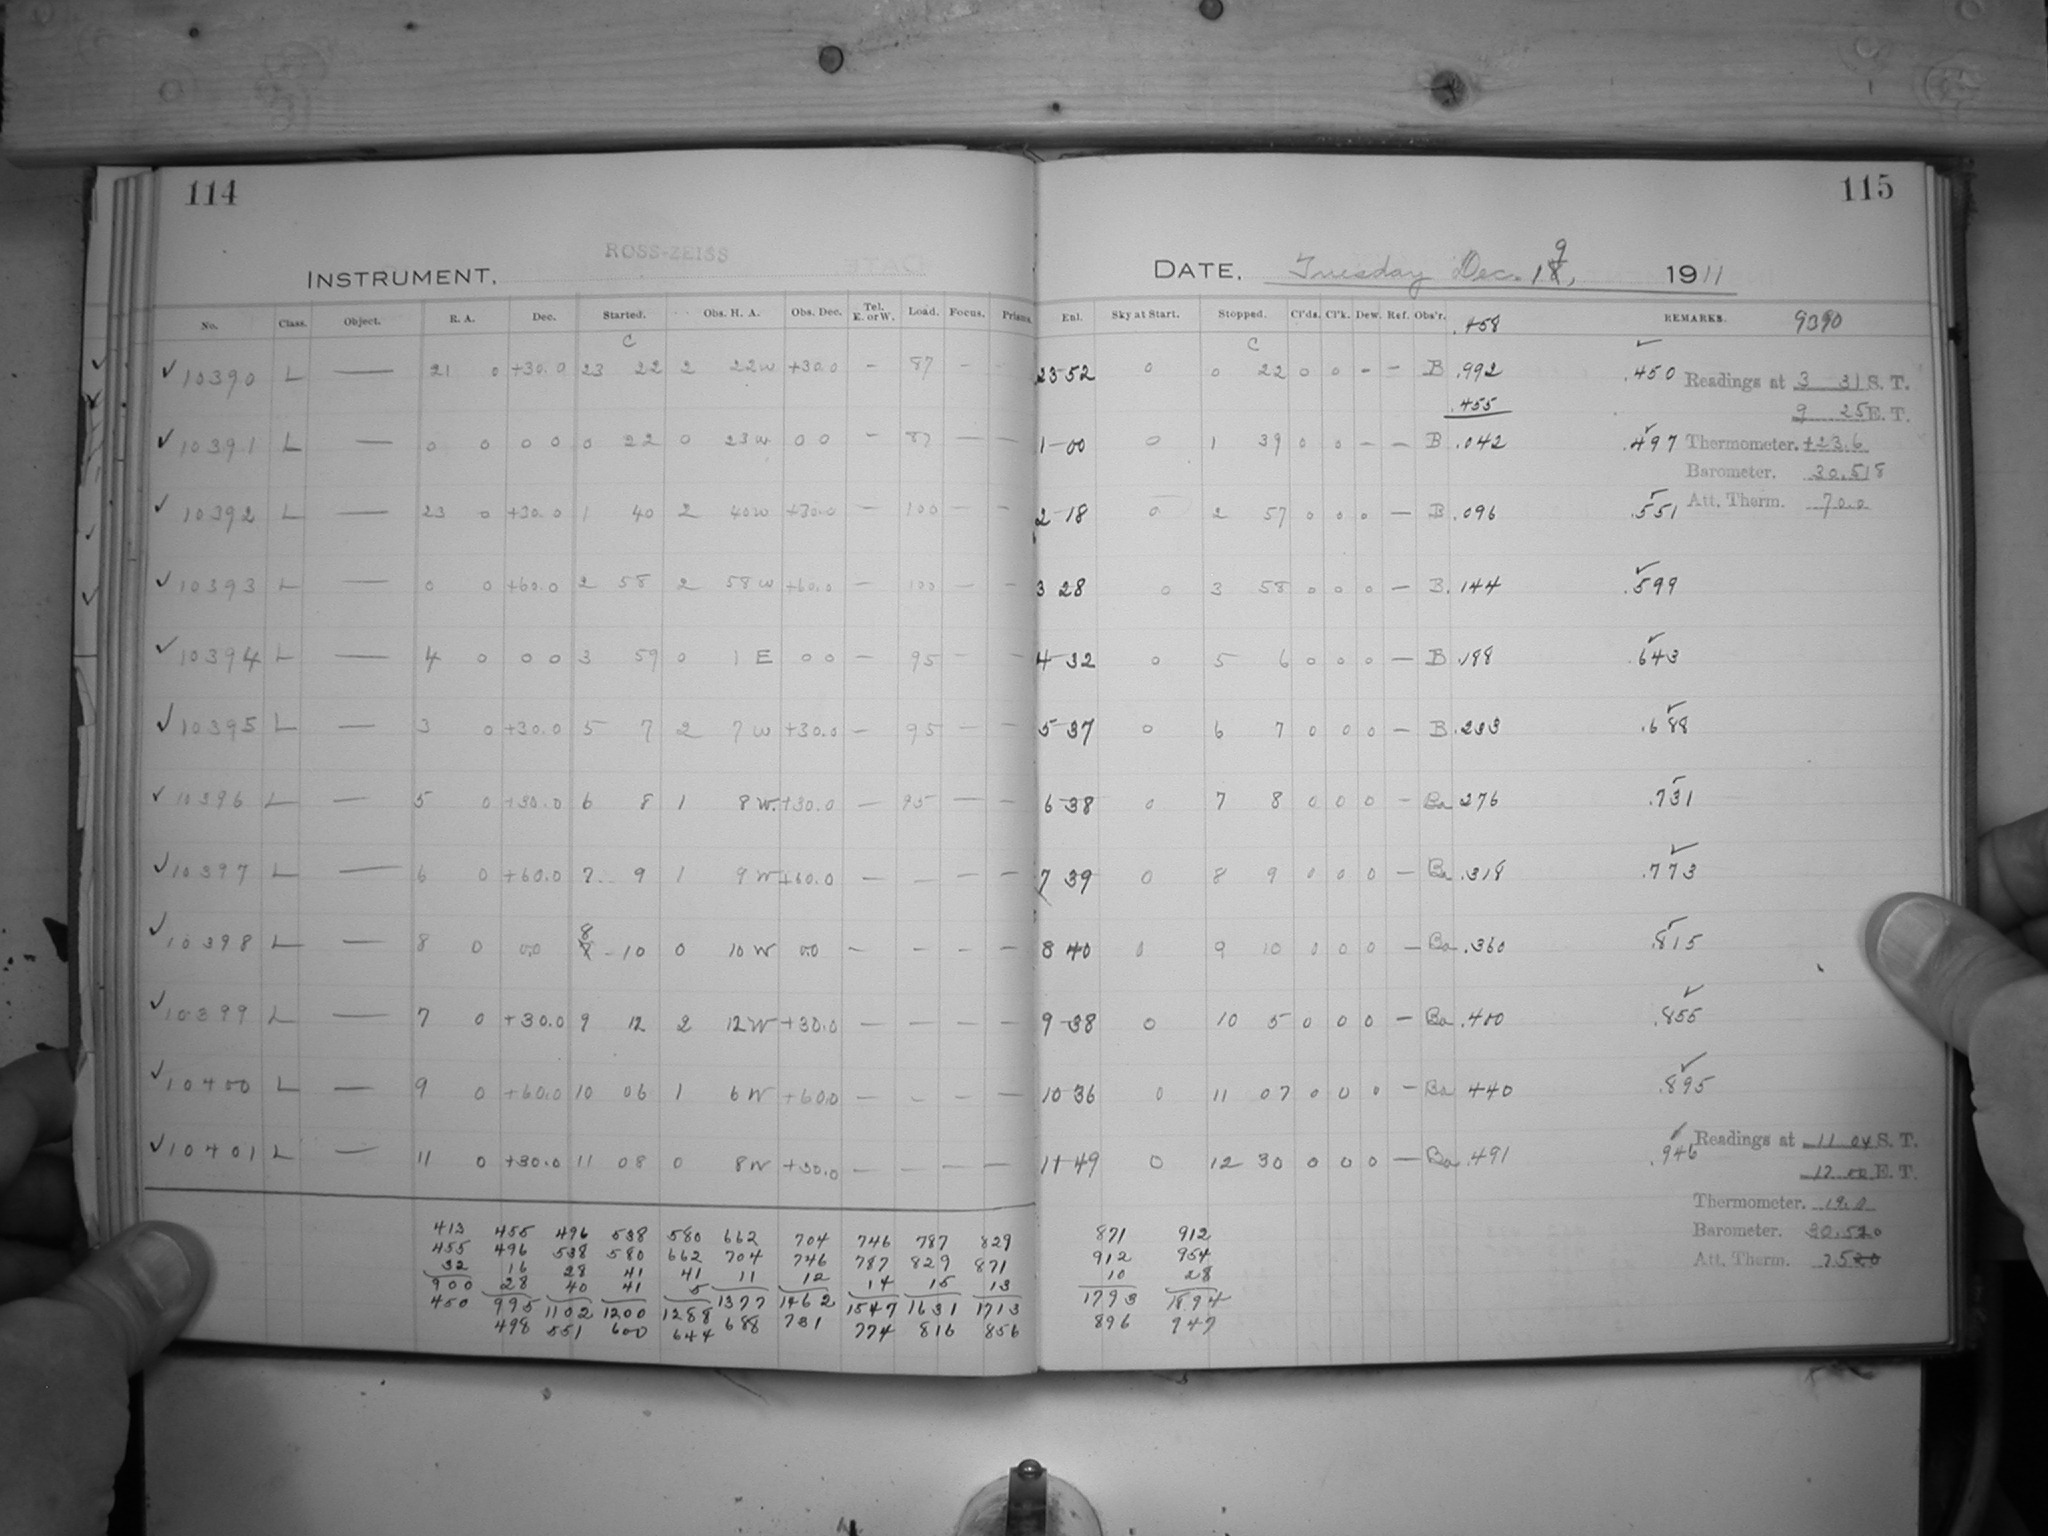 114
ROSS-ZEISS
INSTRUMENT.
No. Class. Object. R. A. Dec. Started. Obs. H. A. Obs. Dec. Tel. E. or W. Load. Focus. Prisms.
C
10390 L — 21 0 +30.0 23 22 2 22W +30.0 — 87 — —
10391 L — 0 0 0 0 0 22 0 23W 0 0 — 87 — —
10392 L — 23 0 +30.0 1 40 2 40W +30.0 — 100 — —
10393 L — 0 0 +60.0 2 58 2 58W +60.0 — 100 — —
10394 L — 4 0 0 0 3 59 0 1 E 0 0 — 95 — —
10395 L — 3 0 +30.0 5 7 2 7W +30.0 — 95 — —
10396 L — 5 0 +30.0 6 8 1 8W. +30.0 — 95 — —
10397 L — 6 0 +60.0 7 9 1 9W +60.0 — — — —
10398 L — 8 0 0.0 8 10 0 10W 0.0 — — — —
10399 L — 7 0 +30.0 9 12 2 12W +30.0 — — — —
10400 L — 9 0 +60.0 10 06 1 6W +60.0 — — — —
10401 L — 11 0 +30.0 11 08 0 8W +30.0 — — — —
413 455 496 538 580 662 704 746 787 829
455 496 538 580 662 704 746 787 829 871
32 16 28 41 41 11 12 14 15 13
900 28 40 41 5 1377 1462 1547 1631 1713
450 995 1102 1200 1288 688 731 774 816 856
498 551 600 644
115
DATE. Tuesday Dec. 19, 1911
Enl. Sky at Start. Stopped. Cl'ds. Cl'k. Dew. Ref. Obs'r. REMARKS.
.458 9390
C
23-52 0 0 22 0 0 — — B .992 .450
.455
1-00 0 1 39 0 0 — — B .042 .497
2-18 0 2 57 0 0 0 — B .096 .551
3 28 0 3 58 0 0 0 — B. 144 .599
4-32 0 5 6 0 0 0 — B .188 .643
5-37 0 6 7 0 0 0 — B .233 .688
6-38 0 7 8 0 0 0 — Ba 276 .731
7 39 0 8 9 0 0 0 — Ba .318 .773
8 40 0 9 10 0 0 0 — Ba .360 .815
9-38 0 10 5 0 0 0 — Ba .400 .855
10-36 0 11 07 0 0 0 — Ba 440 .895
11-49 0 12 30 0 0 0 — Ba .491 .946
Readings at 3 31 S. T.
9 25 E. T.
Thermometer. +23.6
Barometer. 30.518
Att. Therm. 70.0
Readings at 11 04 S. T.
E. T.
Thermometer. 19.0
Barometer. 30.520
Att. Therm.
871 912
912 954
10 28
1793 1894
896 947